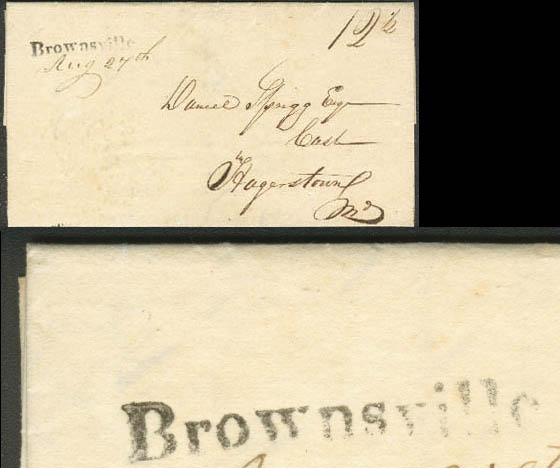 Brownsville
Aug 27th
12½
Daniel Sprigg Esqr
Cash
Hagerstown
Md
Brownsville